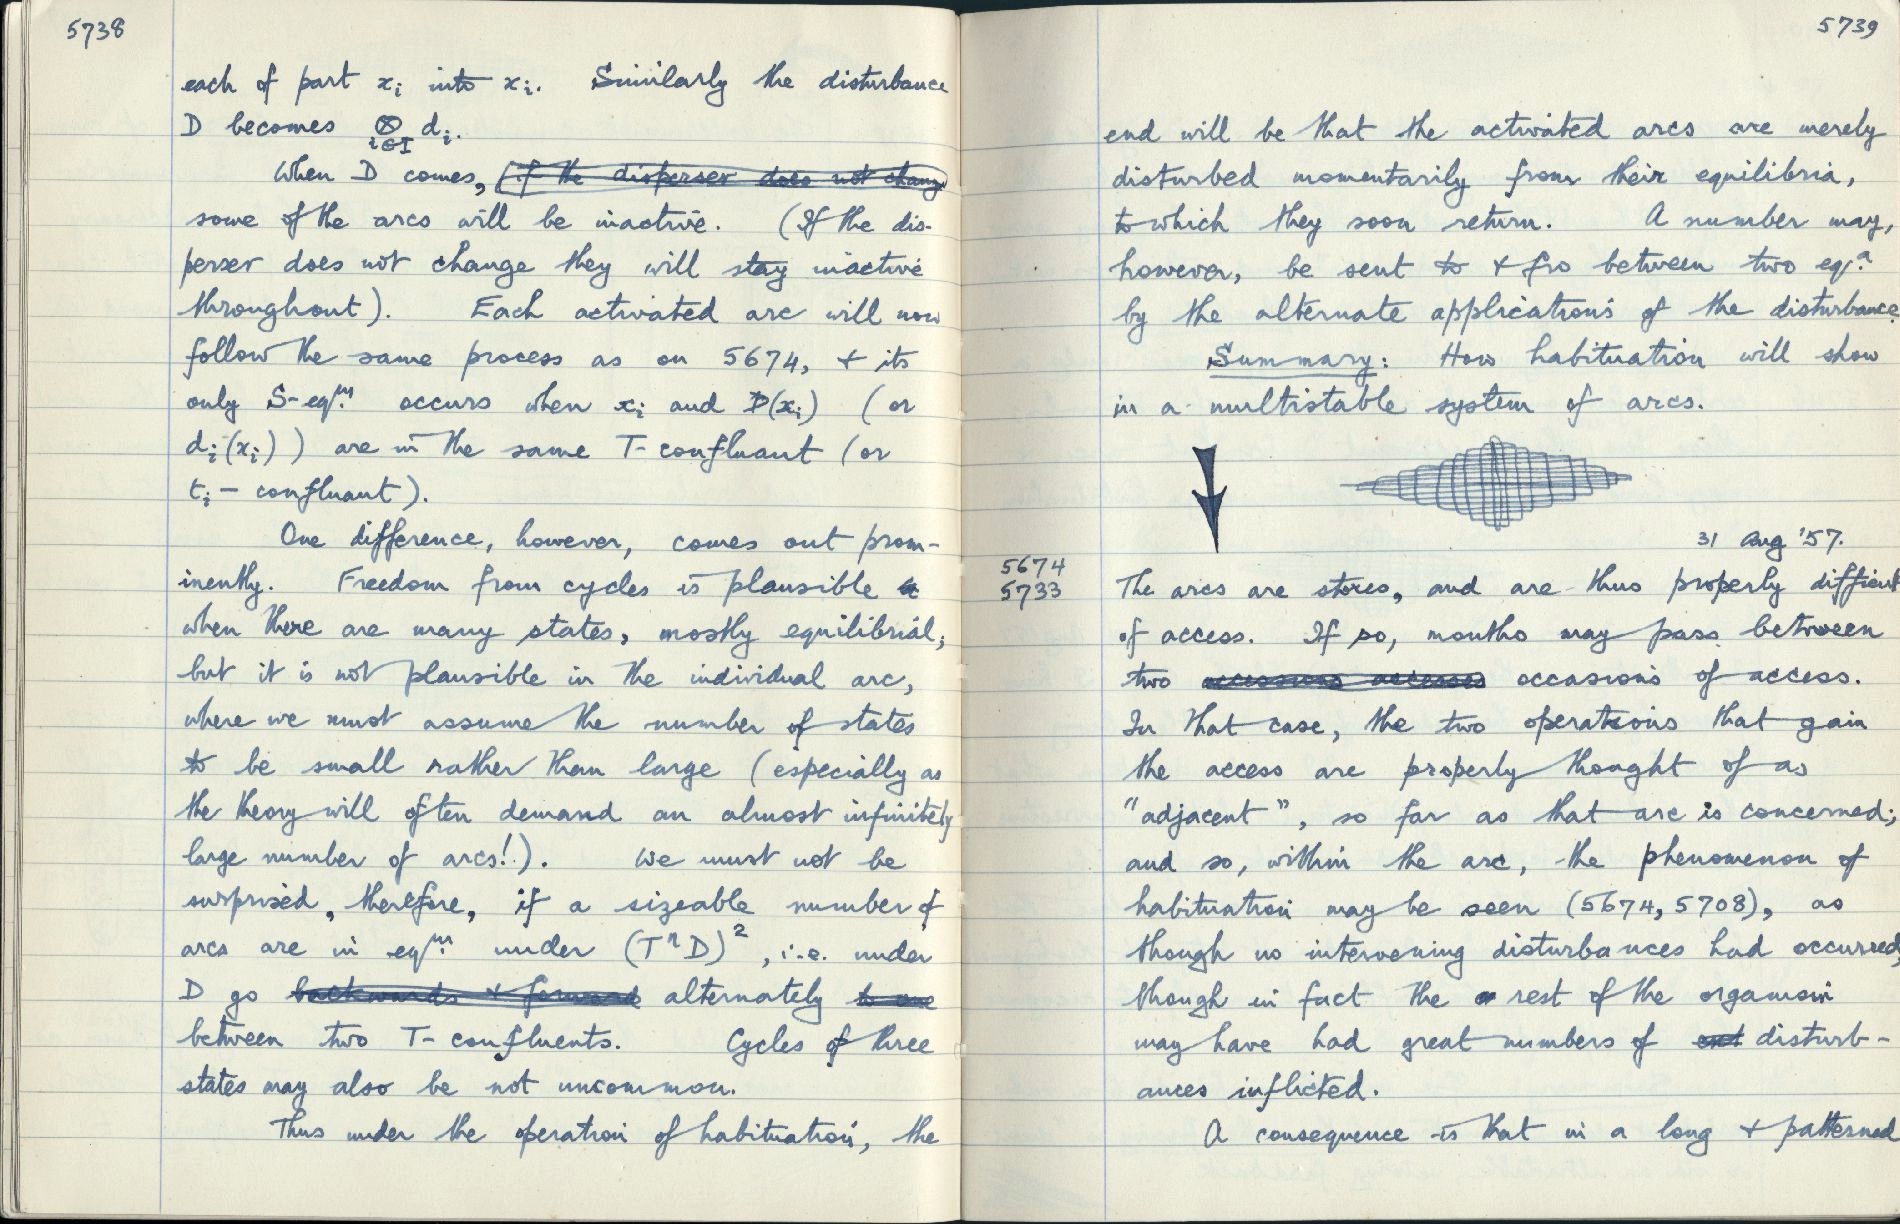 5738
each of part xᵢ into xᵢ. Similarly the disturbance
D becomes ⊗ dᵢ.
i∈I
When D comes, (if the disperser does not change
some of the arcs will be inactive. (If the dis-
perser does not change they will stay inactive
throughout). Each activated arc will now
follow the same process as on 5674, & its
only S-eqᵐ. occurs when xᵢ and D(xᵢ) (or
dᵢ(xᵢ)) are in the same T-confluant (or
tᵢ-confluant).
One difference, however, comes out prom-
inently. Freedom from cycles is plausible
when there are many states, mostly equilibrial;
but it is not plausible in the individual arc,
where we must assume the number of states
to be small rather than large (especially as
the theory will often demand an almost infinitely
large number of arcs!). We must not be
surprised, therefore, if a sizeable number of
arcs are in eqᵐ. under (TⁿD)², i.e. under
D go backwards & forward alternately to one
between two T-confluents. Cycles of three
states may also be not uncommon.
Thus under the operation of habituation, the
5739
end will be that the activated arcs are merely
disturbed momentarily from their equilibria,
to which they soon return. A number may,
however, be sent to & fro between two eqᵃ.
by the alternate applications of the disturbance.
Summary: How habituation will show
in a multistable system of arcs.
31 Aug '57.
5674
5733
The arcs are stores, and are thus properly difficult
of access. If so, months may pass between
two accessions accesses occasions of access.
In that case, the two operations that gain
the access are properly thought of as
"adjacent", so far as that arc is concerned;
and so, within the arc, the phenomenon of
habituation may be seen (5674, 5708), as
though no intervening disturbances had occurred,
though in fact the rest of the organism
may have had great numbers of disturb-
ances inflicted.
A consequence is that in a long & patterned